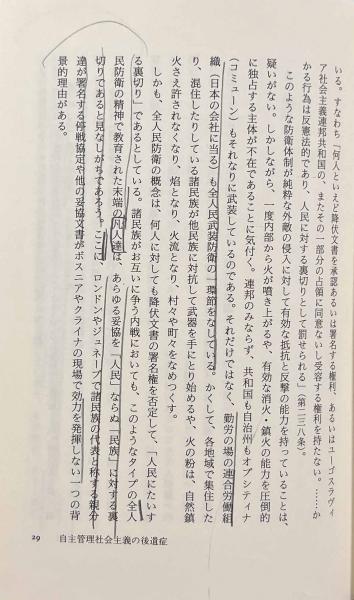 いる。すなわち「何人といえど降伏文書を承認あるいは署名する権利、あるいはユーゴスラヴィ
ア社会主義連邦共和国の、またその一部分の占領に同意ないし受容する権利を持たない。……か
かる行為は反憲法的であり、人民に対する裏切りとして罰せられる」(第二三八条)。
このような防衛体制が純粋な外敵の侵入に対して有効な抵抗と反撃の能力を持っていることは、
疑いがない。しかしながら、一度内部から火が噴き上がるや、有効な消火・鎮火の能力を圧倒的
に独占する主体が不在であることに気付く。連邦のみならず、共和国も自治州もオプシティナ
(コミューン)もそれなりに武装しているのである。それだけではなく、勤労の場の連合労働組
織(日本の会社に当る)も全人民武装防衛の一環節をなしている。かくして、各地域で集住した
り、混住したりしている諸民族が他民族に対抗して武器を手にとり始めるや、火の粉は、自然鎮
火さえ許されなくなり、焰となり、火流となり、村々や町々をなめつくす。
しかも、全人民防衛の概念は、何人に対しても降伏文書の署名権を否定して、「人民にたいす
る裏切り」であるとしている。諸民族がお互いに争う内戦においても、このようなタイプの全人
民防衛の精神で教育された末端の凡人達は、あらゆる妥協を「人民」ならぬ「民族」に対する裏
切りであると見なしがちであろう。ここに、ロンドンやジュネーブで諸民族の代表と称する親分
達が署名する停戦協定や他の妥協文書がボスニアやクライナの現場で効力を発揮しない一つの背
景的理由がある。
29 自主管理社会主義の後遺症